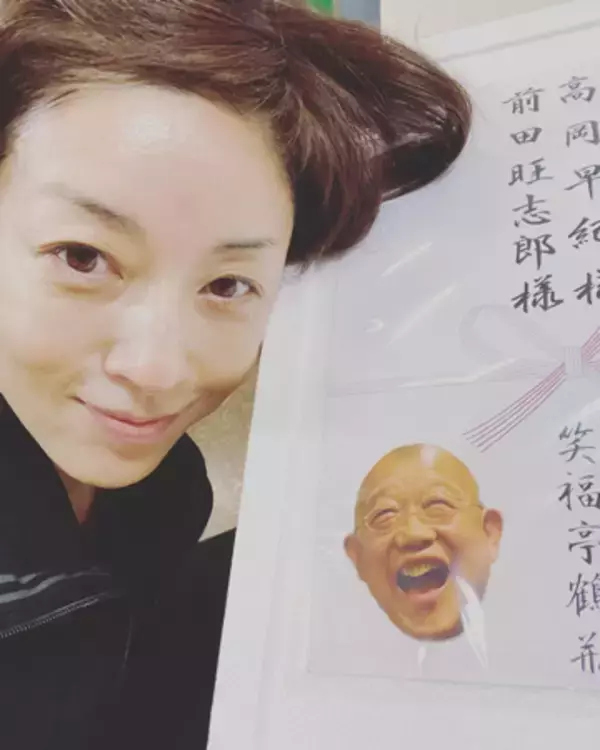 高岡早紀様
前田旺志郎様
笑福亭鶴瓶